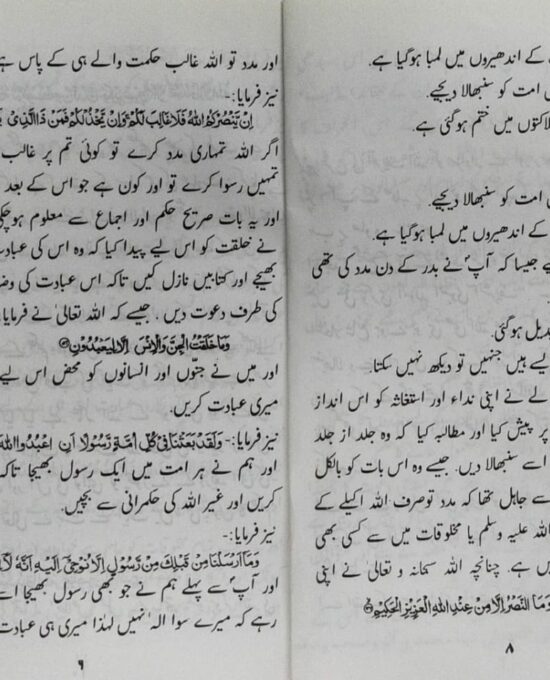 کے اندھیروں میں لمبا ہوگیا ہے۔
امت کو سنبھالا دیجیے۔
ہلاکتوں میں ختم ہوگئی ہے۔
امت کو سنبھالا دیجیے۔
کے اندھیروں میں لمبا ہوگیا ہے۔
جیسا کہ آپؐ نے بدر کے دن مدد کی تھی
تبدیل ہوگئی۔
ایسے ہیں جنہیں تو دیکھ نہیں سکتا۔
نے اپنی نداء اور استغاثہ کو اس انداز
پر پیش کیا اور مطالبہ کیا کہ وہ جلد از جلد
اسے سنبھالا دیں۔ جیسے وہ اس بات کو بالکل
سے جاہل تھا کہ مدد توصرف اللہ اکیلے کے
اللہ علیہ وسلم یا مخلوقات میں سے کسی بھی
میں ہے۔ چنانچہ اللہ سبحانہ و تعالیٰ نے اپنی
وَمَا النَّصْرُ إِلَّا مِنْ عِنْدِ اللهِ الْعَزِيْزِ الْحَكِيْمِ
۸
اور مدد تو اللہ غالب حکمت والے ہی کے پاس ہے
نیز فرمایا:-
اِنْ يَّنْصُرْكُمُ اللهُ فَلَا غَالِبَ لَكُمْ وَاِنْ يَّخْذُلْكُمْ فَمَنْ ذَا الَّذِىْ
اگر اللہ تمہاری مدد کرے تو کوئی تم پر غالب
تمہیں رسوا کرے تو اور کون ہے جو اس کے بعد
اور یہ بات صریح حکم اور اجماع سے معلوم ہوچکی
نے خلقت کو اس لیے پیدا کیا کہ وہ اس کی عبادت
بھیجے اور کتابیں نازل کیں تاکہ اس عبادت کی
کی طرف دعوت دیں۔ جیسے کہ اللہ تعالیٰ نے فرمایا
وَمَا خَلَقْتُ الْجِنَّ وَالْاِنْسَ اِلَّا لِيَعْبُدُوْنِ
اور میں نے جنّوں اور انسانوں کو محض اس لیے
میری عبادت کریں۔
نیز فرمایا:- وَلَقَدْ بَعَثْنَا فِىْ كُلِّ اُمَّةٍ رَّسُوْلًا اَنِ اعْبُدُوا اللهَ
اور ہم نے ہر امت میں ایک رسول بھیجا تاکہ
کریں اور غیر اللہ کی حکمرانی سے بچیں۔
نیز فرمایا:-
وَمَا اَرْسَلْنَا مِنْ قَبْلِكَ مِنْ رَّسُوْلٍ اِلَّا نُوْحِىْ اِلَيْهِ اَنَّهٗ لَا
اور آپؐ سے پہلے ہم نے جو بھی رسول بھیجا اسے
رہے کہ میرے سوا الٰہ نہیں لہٰذا میری ہی عبادت
۹